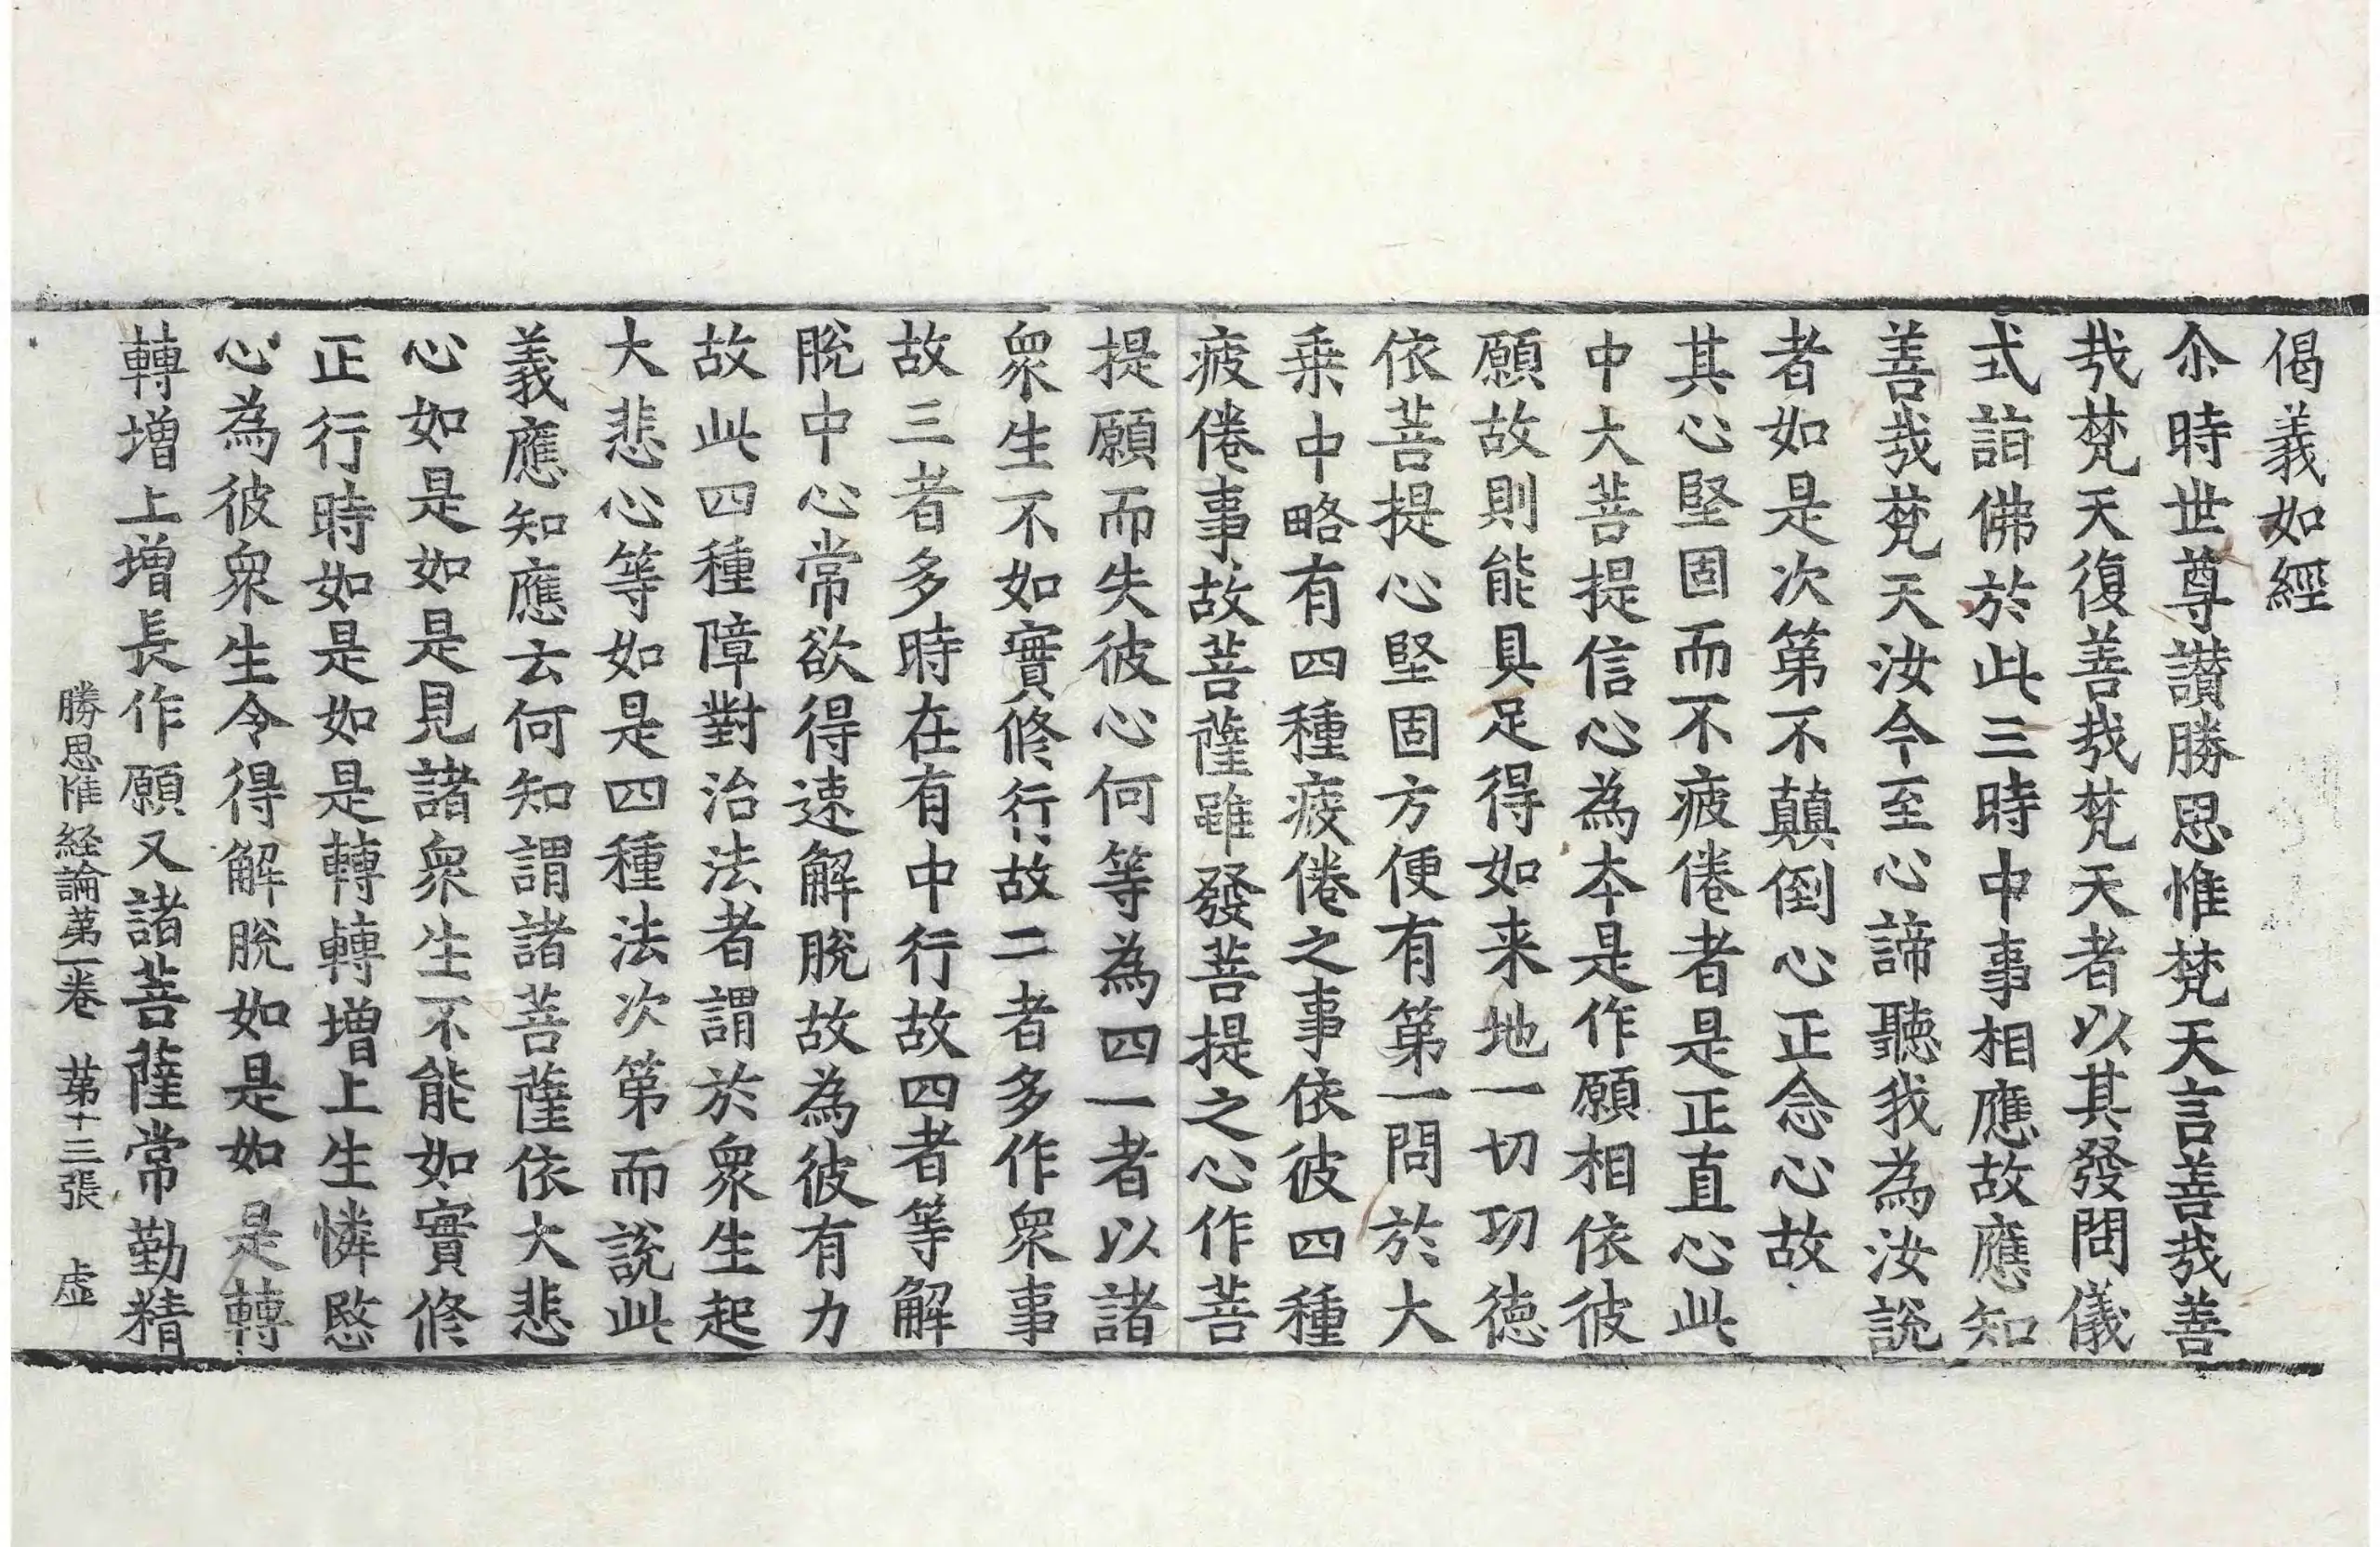 偈義如經
尒時世尊讃勝思惟梵天言善㢤善
㢤梵天復善㢤梵天者以其發問儀
式詣佛於此三時中事相應故應知
善㢤梵天汝今至心諦聽我為汝說
者如是次第不顛倒心正念心故
其心堅固而不疲倦者是正直心此
中大菩提信心為夲是作願相依彼
願故則能具足得如来地一切功徳
依菩提心堅固方便有第一問於大
乗中略有四種疲倦之事依彼四種
疲倦事故菩薩雖發菩提之心作菩
提願而失彼心何等為四一者以諸
衆生不如實修行故二者多作衆事
故三者多時在有中行故四者等解
脫中心常欲得速解脫故為彼有力
故此四種障對治法者謂於衆生起
大悲心等如是四種法次第而說此
義應知應云何知謂諸菩薩依大悲
心如是如是見諸衆生不能如實修
正行時如是如是轉轉增上生憐愍
心為彼衆生令得解脫如是如是轉
轉增上增長作願又諸菩薩常勤精
勝思惟経論第一卷　第十三張　虚